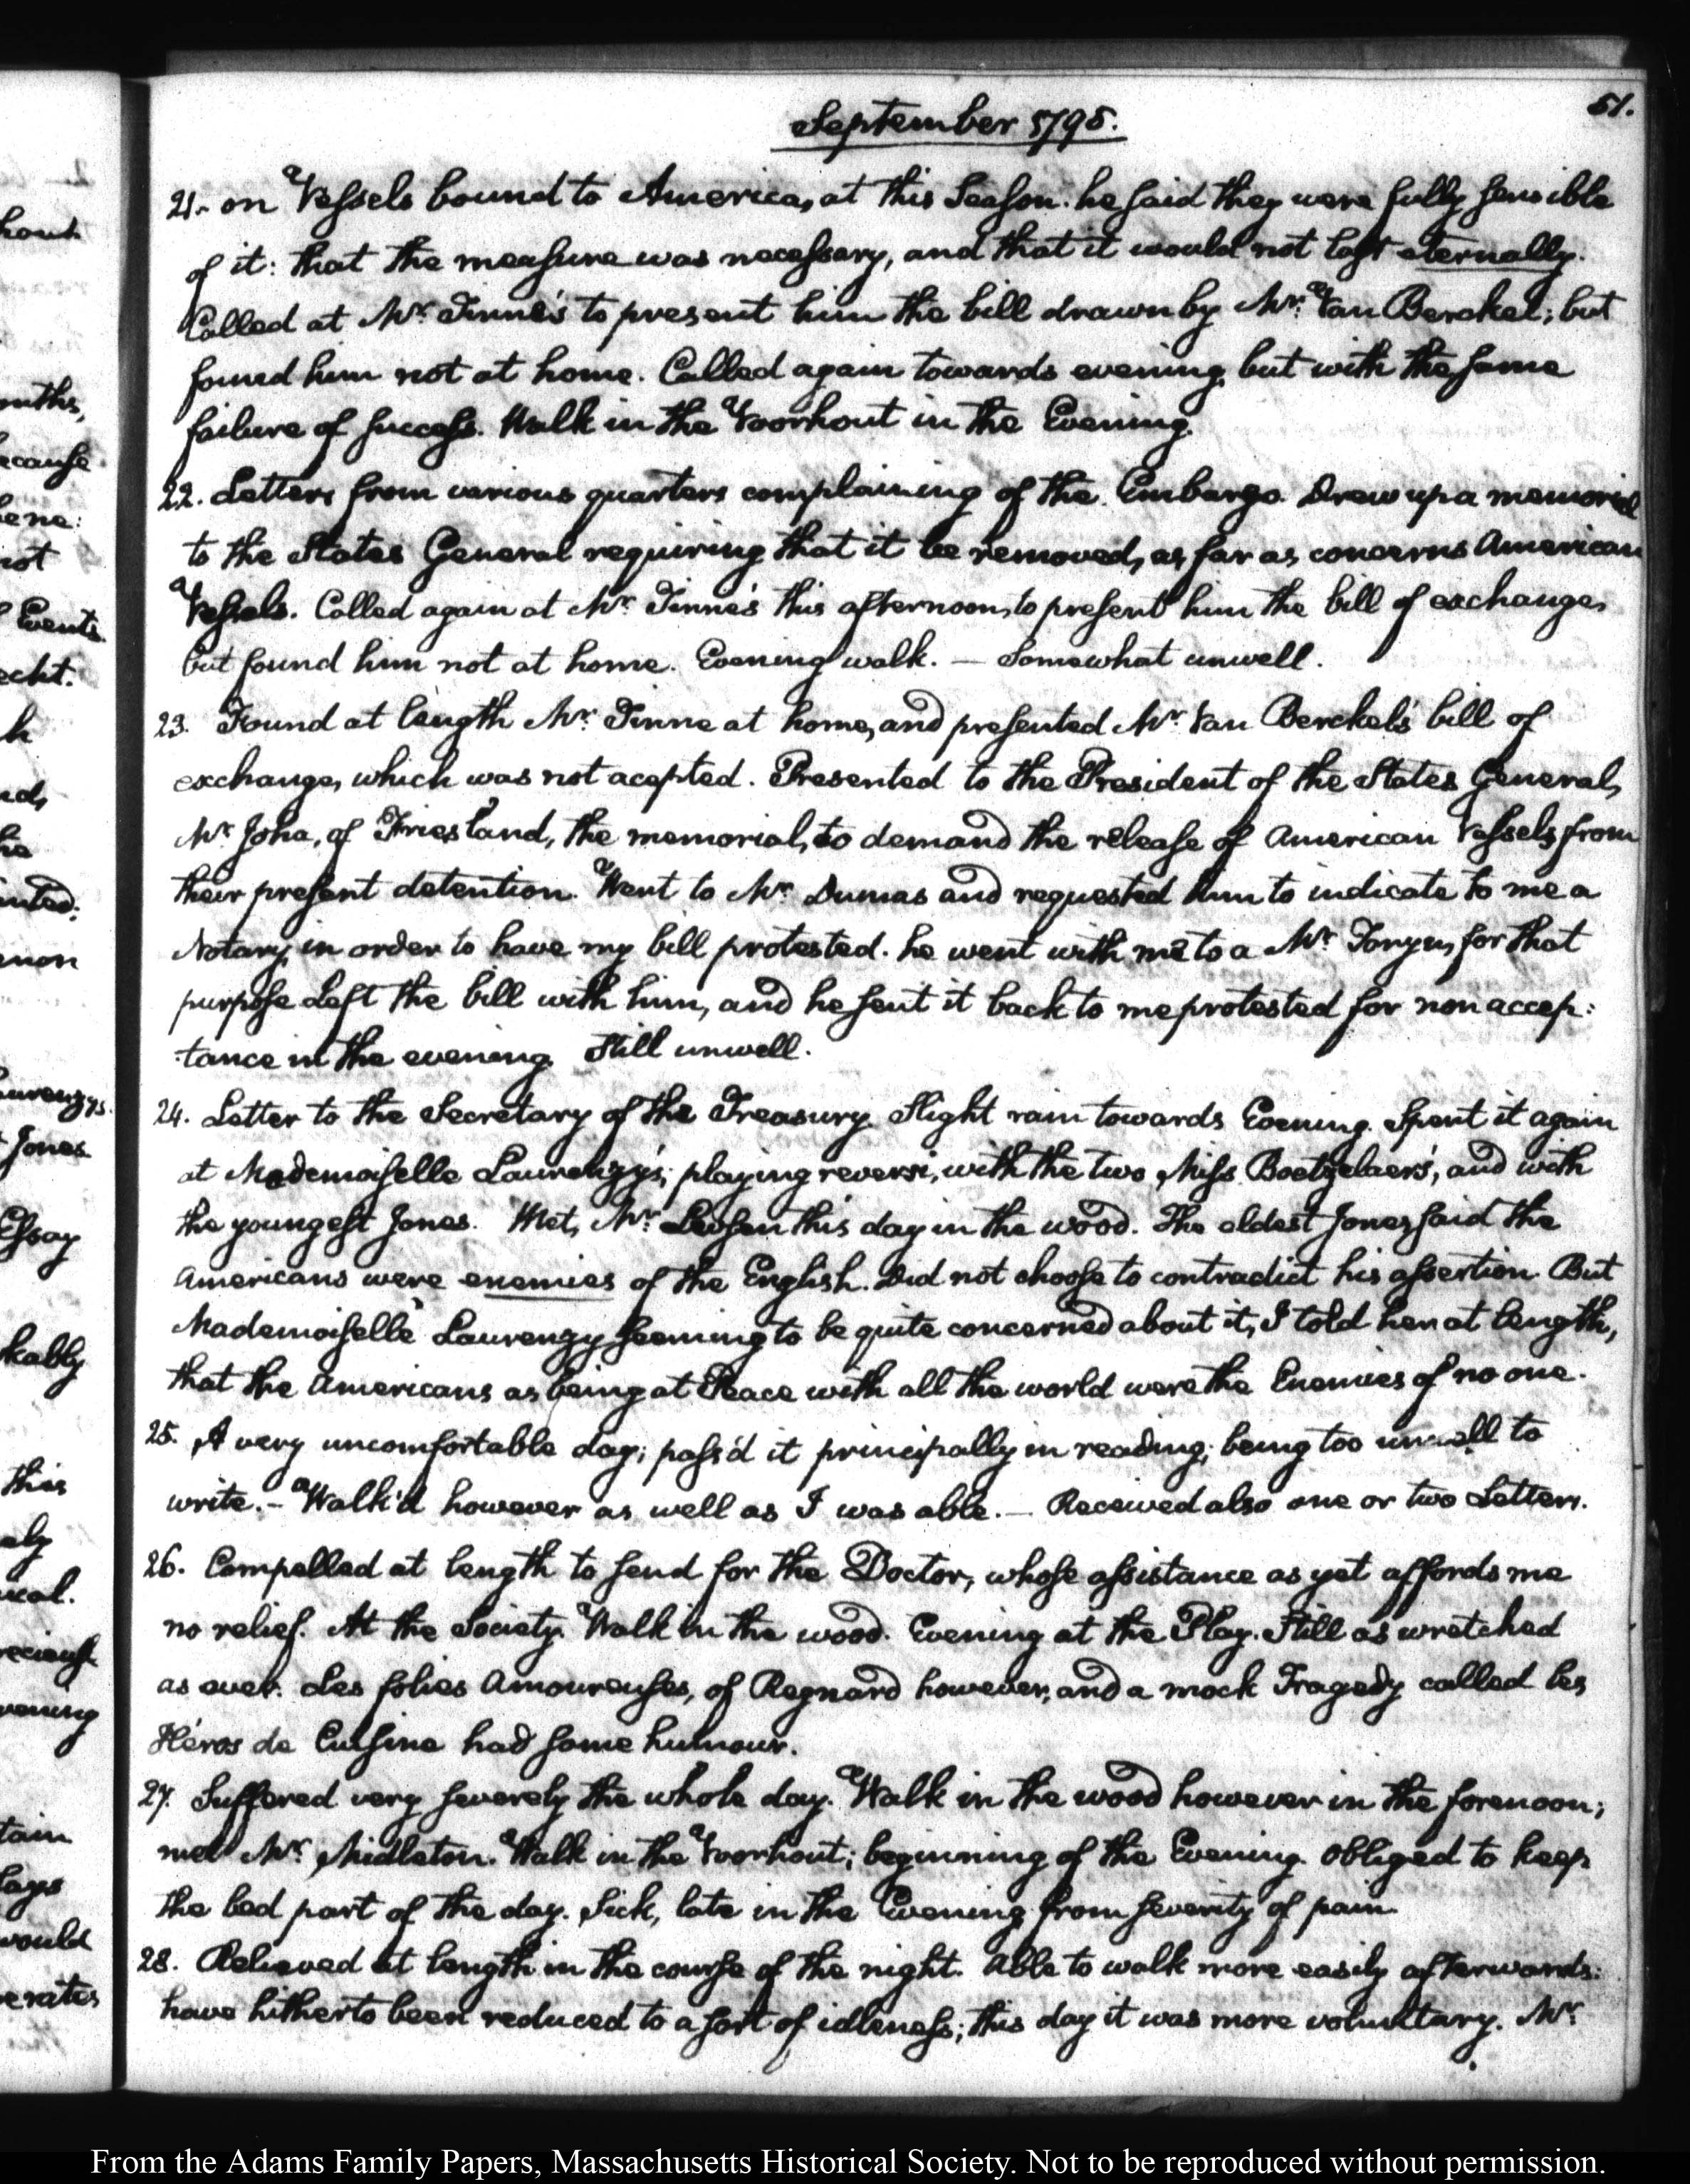 September 1795.
51.
21. on Vessels bound to America, at this Season. he said they were fully sensible
of it: that the measure was necessary, and that it would not last eternally.
Called at Mr. Tinne's to present him the bill drawn by Mr. Van Berckel; but
found him not at home. Called again towards evening but with the same
failure of success. Walk in the Voorhout in the Evening.
22. Letters from various quarters complaining of the Embargo. Drew up a memorial
to the States General requiring that it be removed, as far as concerns American
Vessels. Called again at Mr. Tinne's this afternoon, to present him the bill of exchange,
but found him not at home. Evening walk. — Somewhat unwell.
23. Found at length Mr. Tinne at home, and presented Mr. Van Berckel's bill of
exchange, which was not acepted. Presented to the President of the States General,
Mr. Joha, of Friesland, the memorial, to demand the release of American Vessels from
their present detention. Went to Mr. Dumas and requested him to indicate to me a
Notary, in order to have my bill protested. he went with me to a Mr. for that
purpose Left the bill with him, and he sent it back to me protested for non accep:
tance in the evening. Still unwell.
24. Letter to the Secretary of the Treasury. Slight rain towards Evening. Spent it again
at Mademoiselle Laurenzy's; playing reversi, with the two Miss Boetzelaer's, and with
the youngest Jones. Met, Mr. this day in the wood. The eldest Jones, said the
Americans were enemies of the English. Did not choose to contradict his assertion. But
Mademoiselle Laurenzy seeming to be quite concerned about it, I told her at length,
that the Americans as being at Peace with all the world were the Enemies of no one.
25. A very uncomfortable day; pass'd it principally in reading; being too unwell to
write. - Walk'd however as well as I was able. — Received also one or two Letters.
26. Compelled at length to send for the Doctor, whose assistance as yet affords me
no relief. At the Society. Walk in the wood. Evening at the Play. Still as wretched
as ever. Les folies Amoureuses, of Regnard however, and a mock Tragedy called les
Héros de Cuisine had some humour.
27. Suffered very severely the whole day. Walk in the wood however in the forenoon;
met Mr. Midleton. Walk in the Voorhout; beginning of the Evening. Obliged to keep
the bed part of the day. Sick, late in the Evening from severity of pain.
28. Relieved at length in the course of the night. Able to walk more easily afterwards:
have hitherto been reduced to a sort of idleness; this day it was more voluntary. Mr.
hout
nths,
ecause
ene:
not
Events
echt.
h
nd,
he
nted;
mon
Laurenzys.
Jones
Essay
kably
this
ely
ening
tain
lays
would
erates
From the Adams Family Papers, Massachusetts Historical Society. Not to be reproduced without permission.